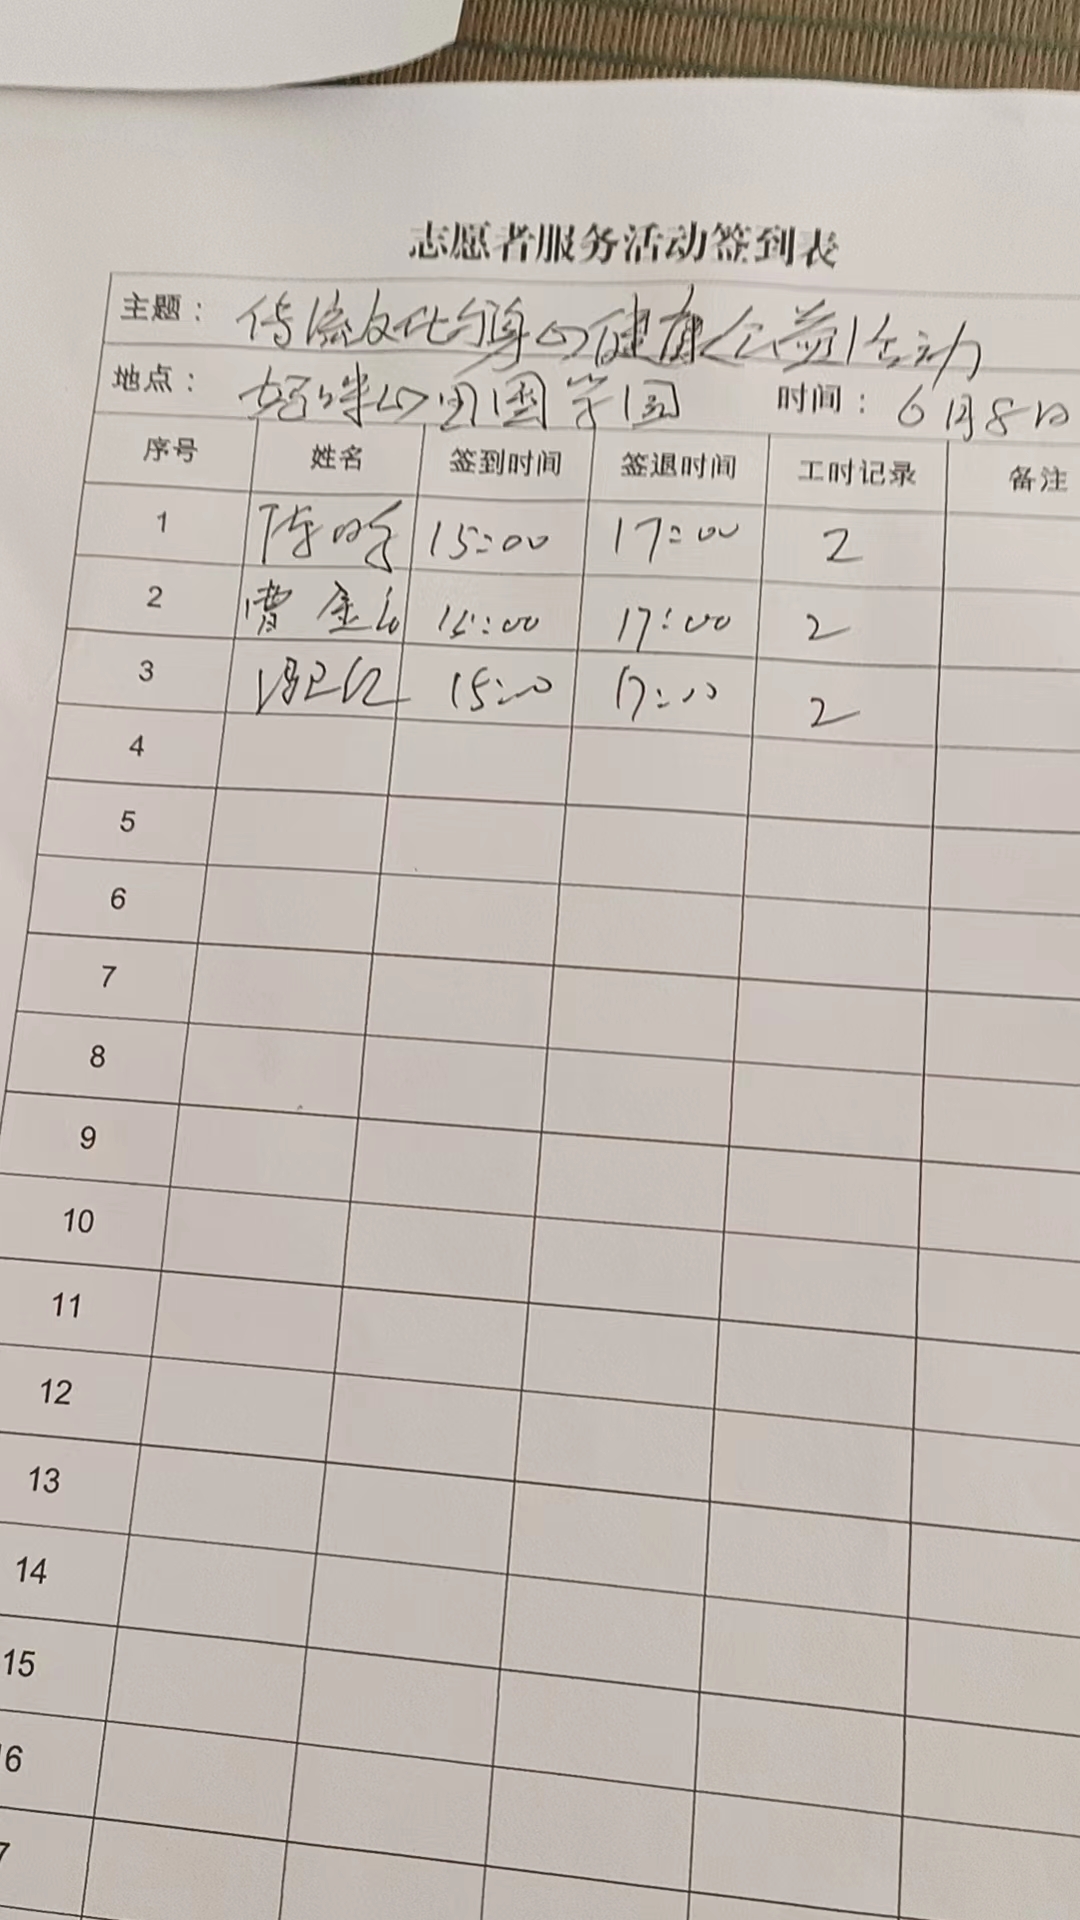 志愿者服务活动签到表
主题：传统文化与身心健康公益活动
地点：心田国学园 时间：6月8日
序号 姓名 签到时间 签退时间 工时记录 备注
1 陈 15:00 17:00 2
2 曹金 15:00 17:00 2
3 冯卫红 15:00 17:00 2
4
5
6
7
8
9
10
11
12
13
14
15
16
7